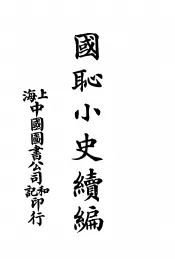 國恥小史續編
上海中國圖書公司和記印行